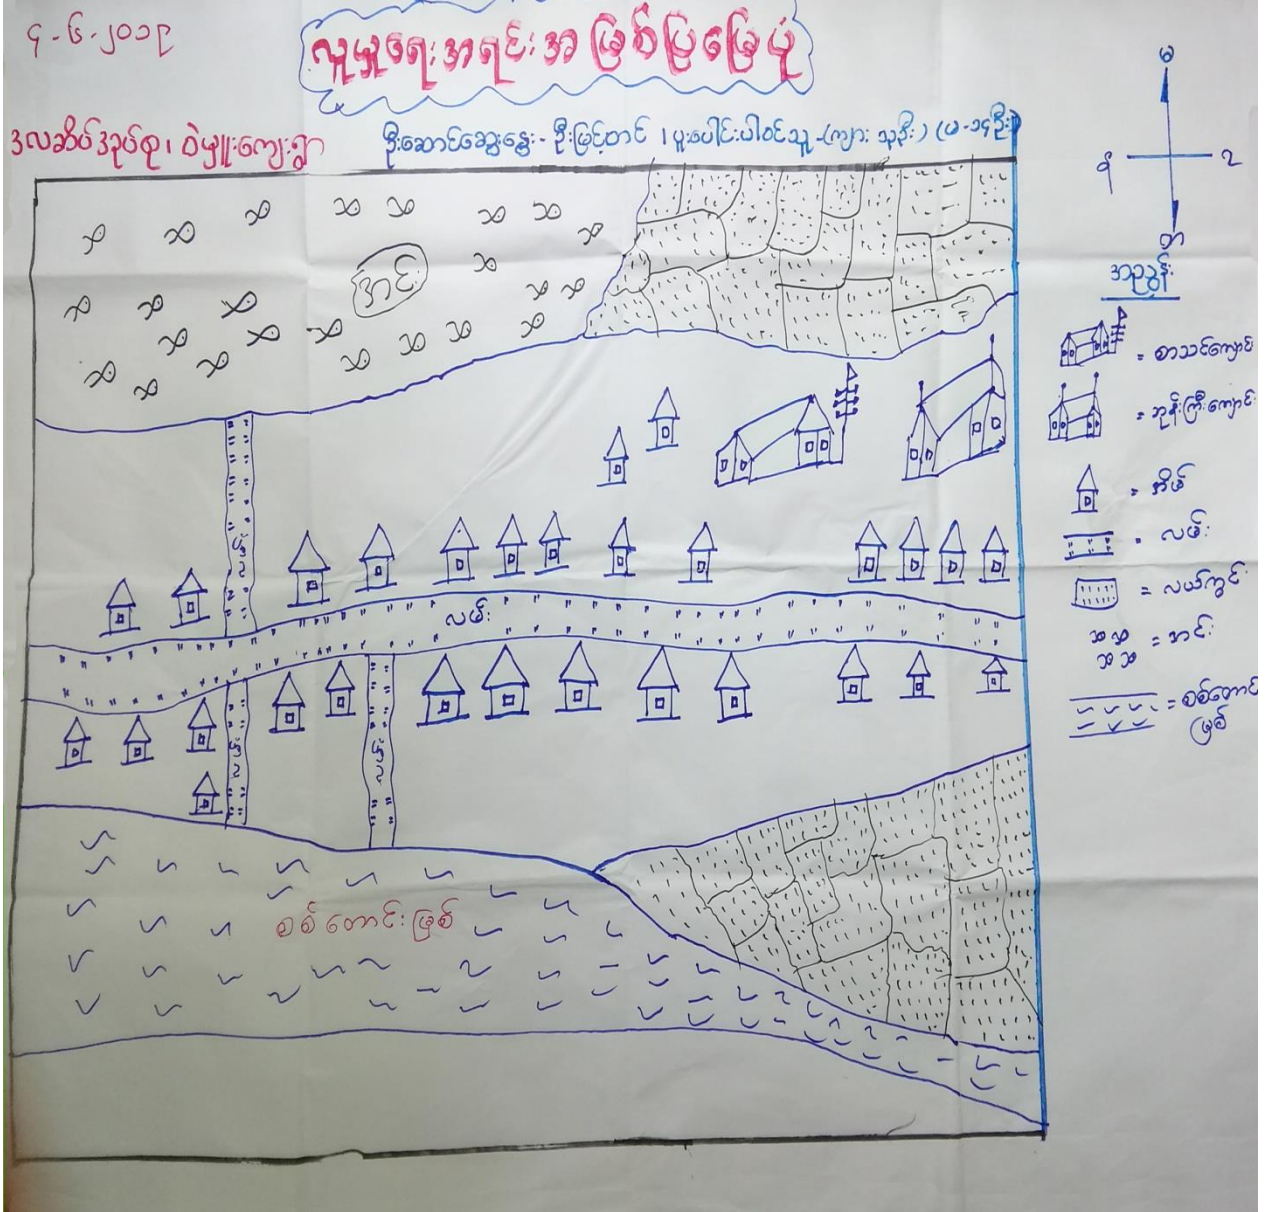 ၄-၆-၂၀၁၉
လူမှုရေးအရင်းအမြစ်ပြမြေပုံ
ဒလဆိပ်ဒဉပ်စု၊ ဝဲမျှူးကျေးရွာ
ဦးဆောင်ဆွေးနွေး - ဦးမြင့်တင် ၊ ပူးပေါင်းပါဝင်သူ-(ကျား
မ
ဒလ
အင်း
အညွှန်း
= စာသင်ကျောင်း
= ဘုန်းကြီးကျောင်း
= အိမ်
= လမ်း
= လယ်ကွင်း
= အင်း
= စစ်တောင်း
မြစ်
လမ်း
လမ်း
လမ်း
လမ်း
စစ်တောင်းမြစ်